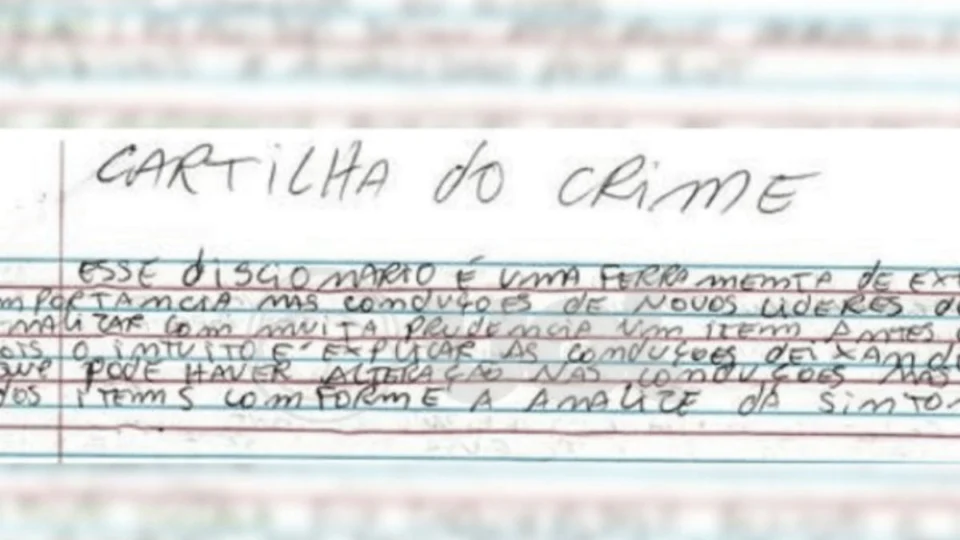 CARTILHA do CRIME
ESSE disCIONARIO É UMA FERRAMENTA dE EX
MPORTANCIA NAS CONDUÇOES DE NOVOS LIDERES
NALIZAR COM MUITA PRUDENCIA UM ITEM ANTES
OIS O INTUITO E EXPLICAR AS CONDUÇOES DEIXANDO
QUE PODE HAVER ALTERAÇÃO NAS CONDUÇOES MAS
DOS ITEMS CONFORME A ANALIZE dA SINTON